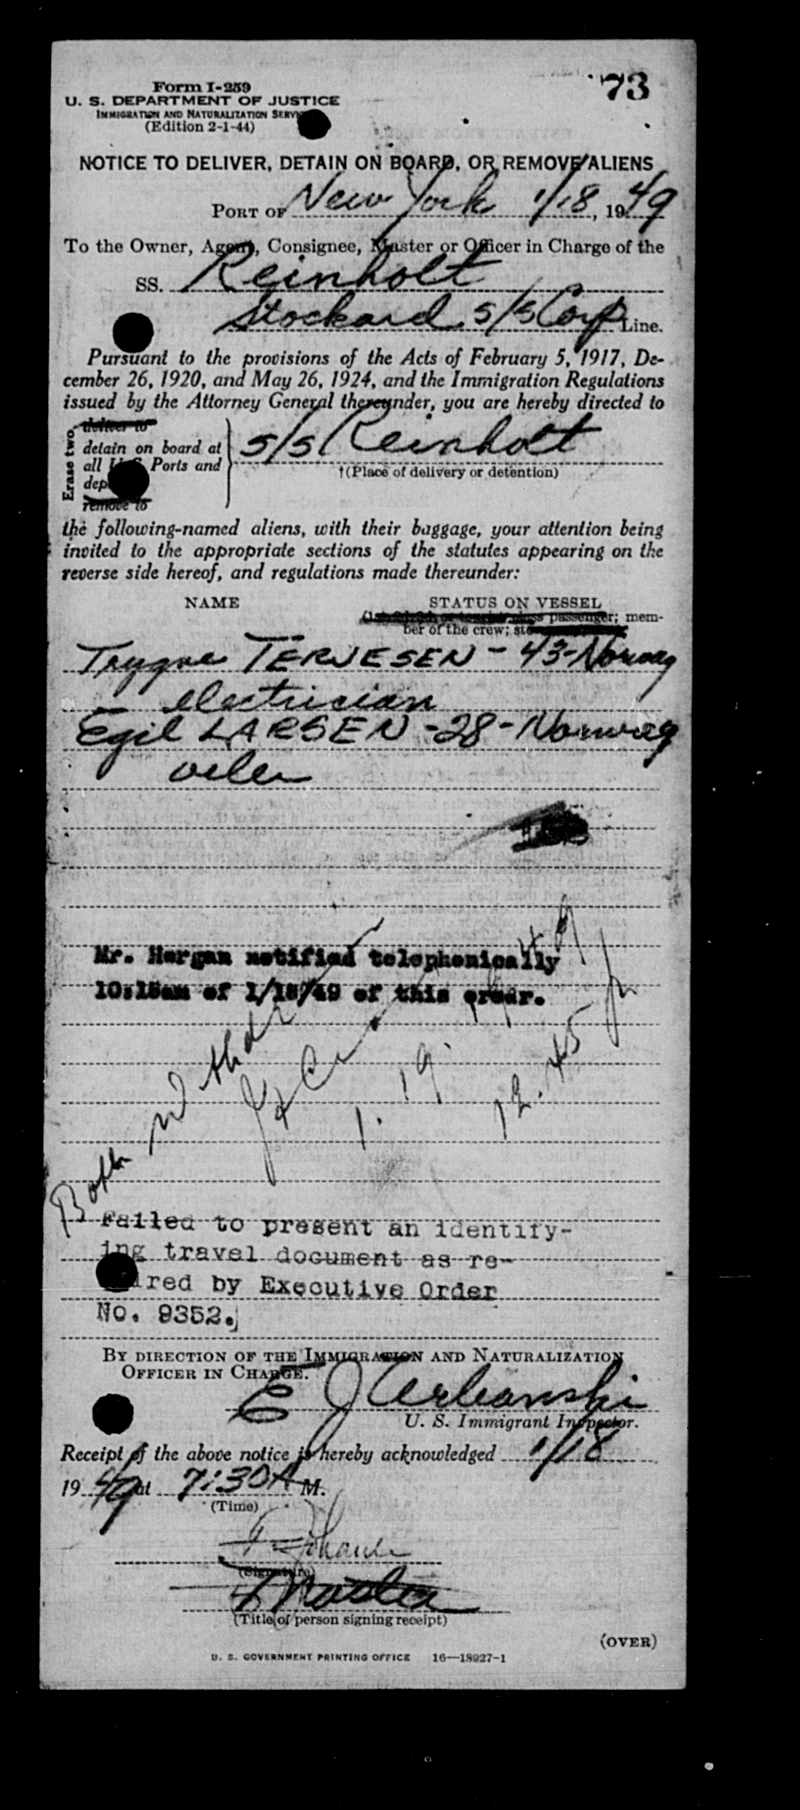 73
Form I-259
U. S. DEPARTMENT OF JUSTICE
IMMIGRATION AND NATURALIZATION SERVICE
(Edition 2-1-44)
NOTICE TO DELIVER, DETAIN ON BOARD, OR REMOVE ALIENS
PORT OF New York 1/18, 1949
To the Owner, Agent, Consignee, Master or Officer in Charge of the
SS. Reinholt
Stockard S/S Corp Line.
Pursuant to the provisions of the Acts of February 5, 1917, De-
cember 26, 1920, and May 26, 1924, and the Immigration Regulations
issued by the Attorney General thereunder, you are hereby directed to
Erase two
deliver to
detain on board at
all U.S. Ports and
dep
remove to
S/S Reinholt
†(Place of delivery or detention)
the following-named aliens, with their baggage, your attention being
invited to the appropriate sections of the statutes appearing on the
reverse side hereof, and regulations made thereunder:
NAME STATUS ON VESSEL
passenger; mem-
ber of the crew;
Trygve TERJESEN - 43 - Norway
electrician
Egil LARSEN - 28 - Norway
oiler
Mr. Horgan notified telephonically
10:15am of 1/18/49 of this order.
Both
1.19.49
12.45
Failed to present an identify-
ing travel document as re-
quired by Executive Order
No. 9352.
BY DIRECTION OF THE IMMIGRATION AND NATURALIZATION
OFFICER IN CHARGE.
E J Urbanski
U. S. Immigrant Inspector.
Receipt of the above notice is hereby acknowledged 1/18
1949 at 7:30 A M.
(Time)
(Signature)
Master
(Title of person signing receipt)
(OVER)
U. S. GOVERNMENT PRINTING OFFICE 16—18927-1